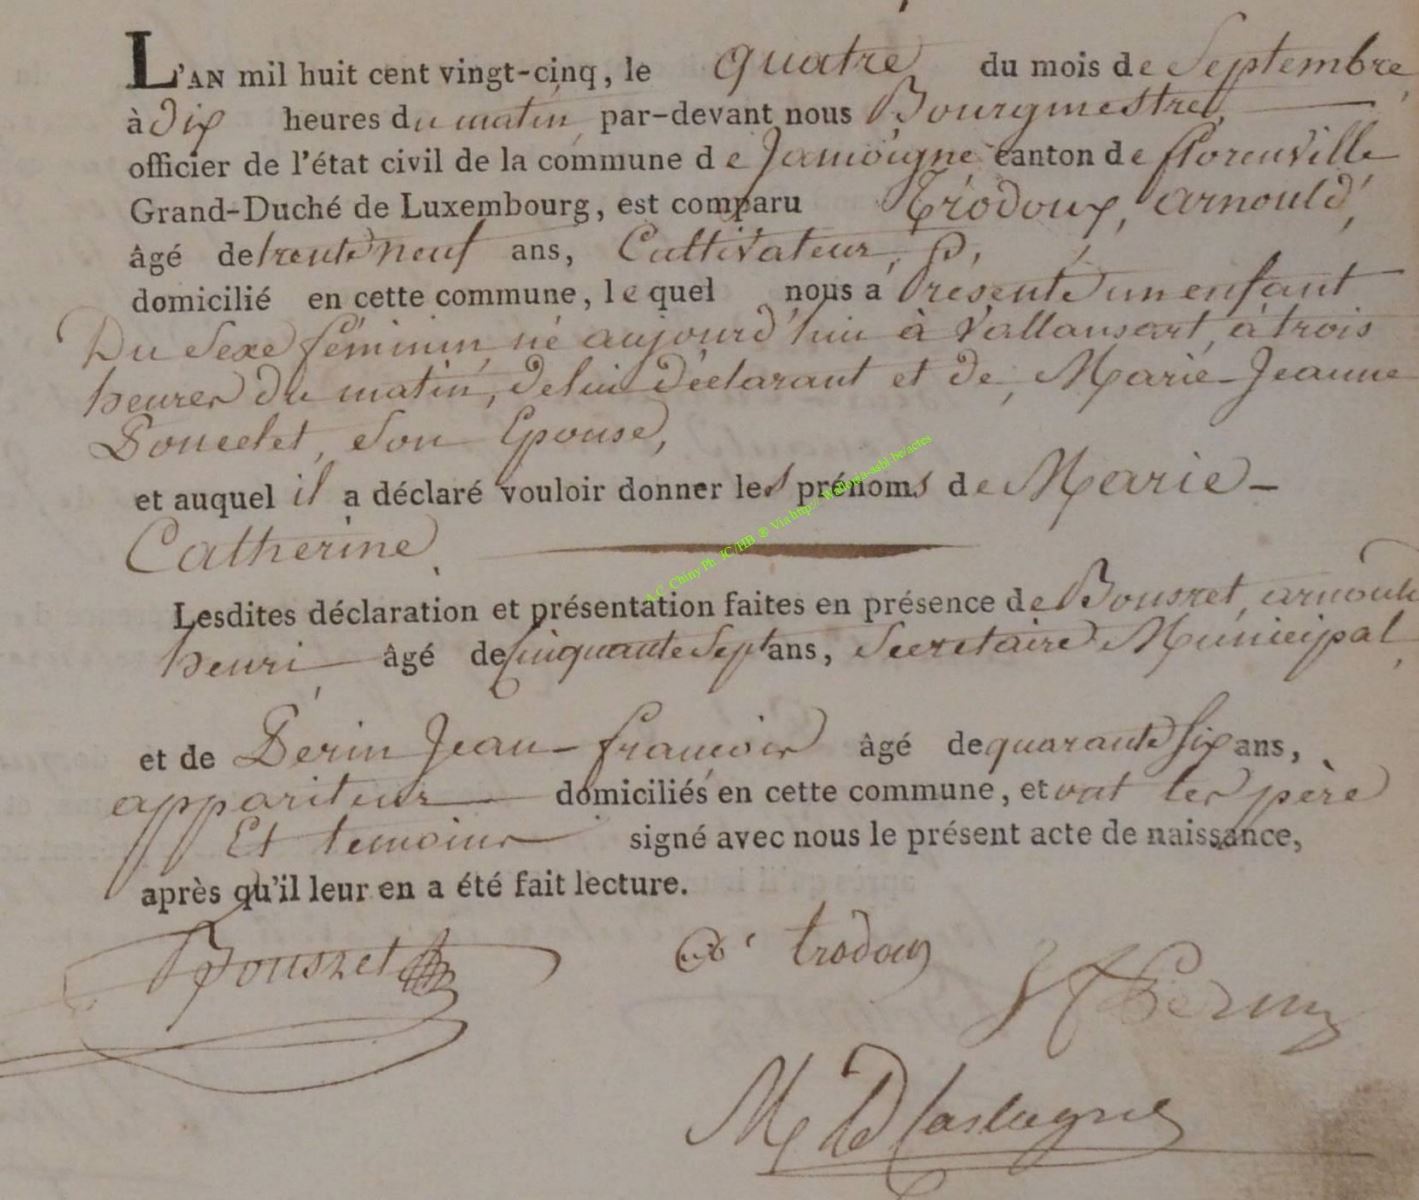 L'AN mil huit cent vingt-cinq, le quatre du mois de Septembre,
à Dix heures du matin, par-devant nous Bourgmestre,
officier de l'état civil de la commune de Jamoigne canton de florenville
Grand-Duché de Luxembourg, est comparu Trodoux, arnould,
âgé de trente neuf ans, Cultivateur,
domicilié en cette commune, lequel nous a présenté un enfant
Du Sexe féminin, né aujourd'hui à Vallansart, à trois
heures du matin, de lui déclarant et de, Marie-Jeanne
Poncelet, Son Epouse,
et auquel il a déclaré vouloir donner les prénoms de Marie-
Catherine.
A.C. Chiny Ph. JC/HB ® Via http://Wallonia-asbl-be/actes
Lesdites déclaration et présentation faites en présence de Bouszet, arnould
henri âgé de cinquante Sept ans, Secretaire Municipal,
et de Perin Jean-francois âgé de quarante Six ans,
appariteur domiciliés en cette commune, et ont les père
Et temoins signé avec nous le présent acte de naissance,
après qu'il leur en a été fait lecture.
Bouszet trodoux
Perin